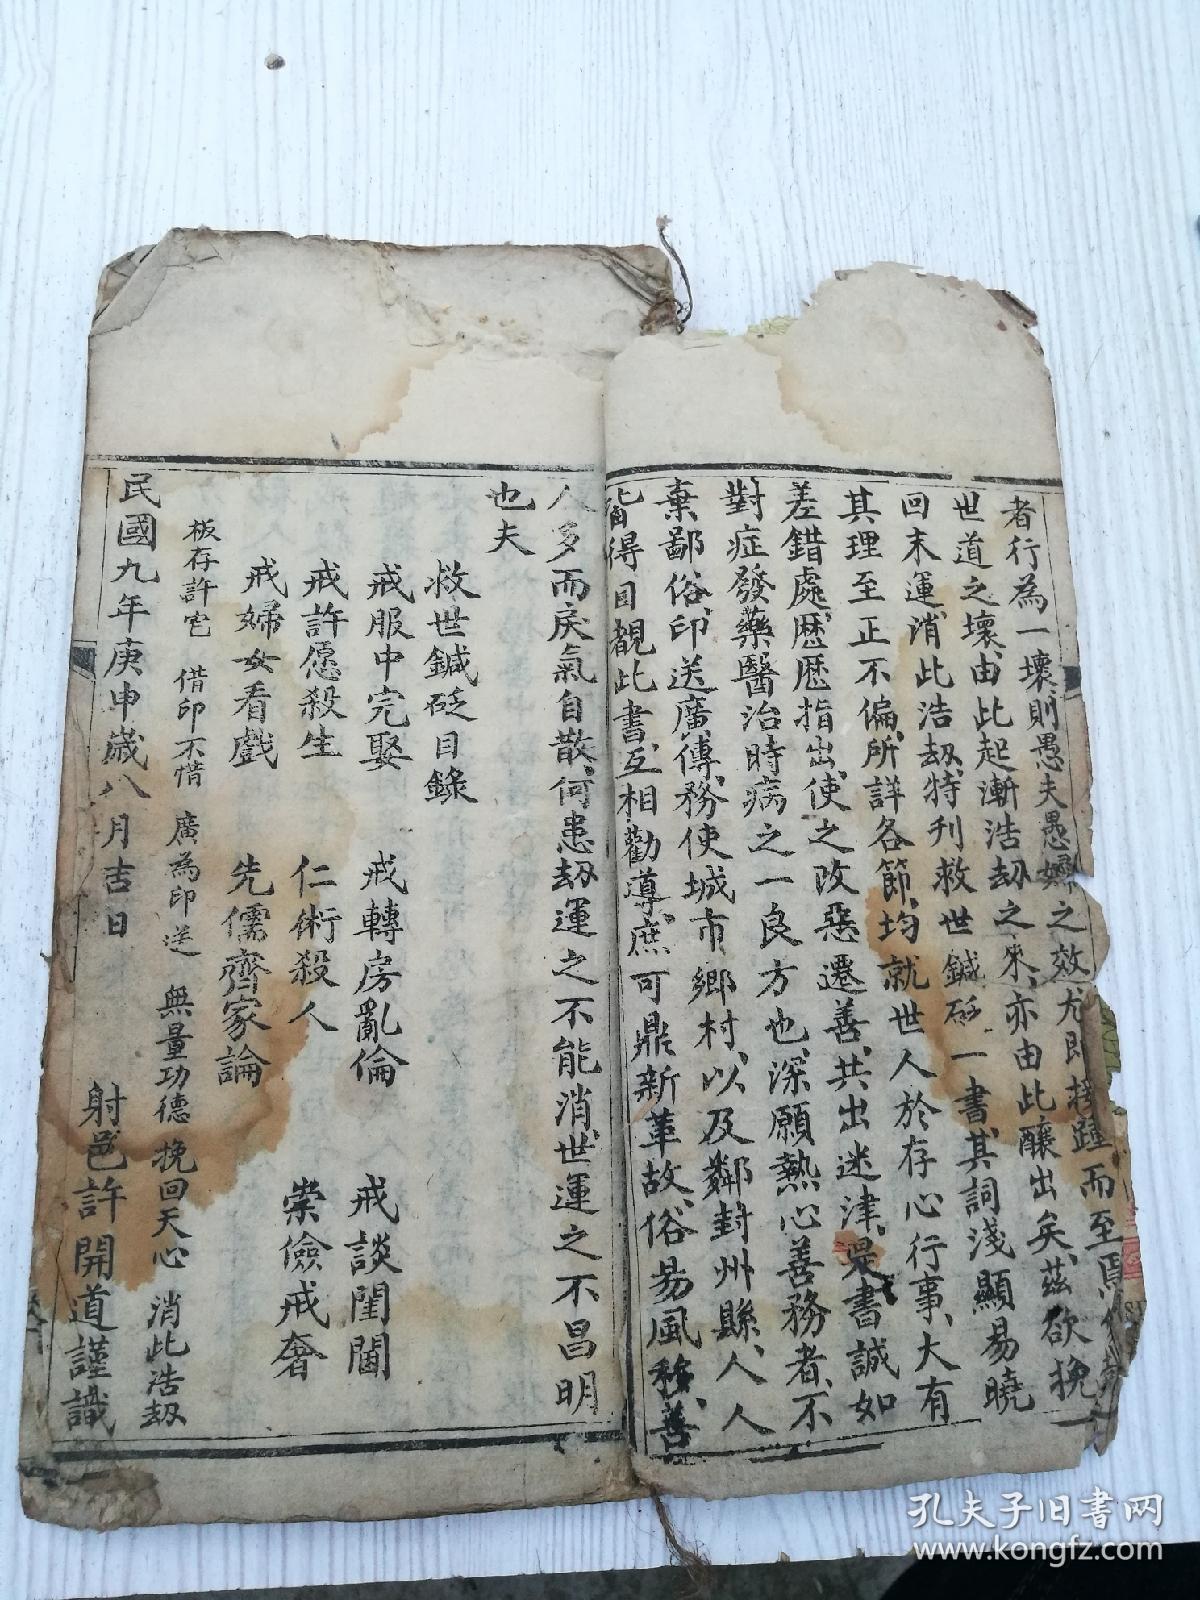 者行為一壞則愚夫愚婦之效尤即接踵而至焉
世道之壞、由此起漸浩刼之來、亦由此釀出矣、茲欲挽
回末運、消此浩刼、特刋救世鍼砭一書、其詞淺顯易曉
其理至正不偏、所詳各節、均就世人於存心行事、大有
差錯處、歷歷指出、使之改惡遷善、共出迷津、是書誠如
對症發藥醫治時病之一良方也、深願熱心善務者、不
棄鄙俗、印送廣傳、務使城市鄉村、以及鄰封州縣、人人
皆得目覩此書、互相勸導、庶可鼎新革故、俗易風移、善
人多而戾氣自散、何患刼運之不能消、世運之不昌明
也夫
救世鍼砭目錄
戒服中完娶 戒轉房亂倫 戒談閨閫
戒許愿殺生 仁術殺人 崇儉戒奢
戒婦女看戲 先儒齊家論
板存許宅 借印不惜 廣為印送 無量功德 挽回天心 消此浩刼
民國九年庚申歲八月吉日 射邑許開道謹識
孔夫子旧书网
www.kongfz.com